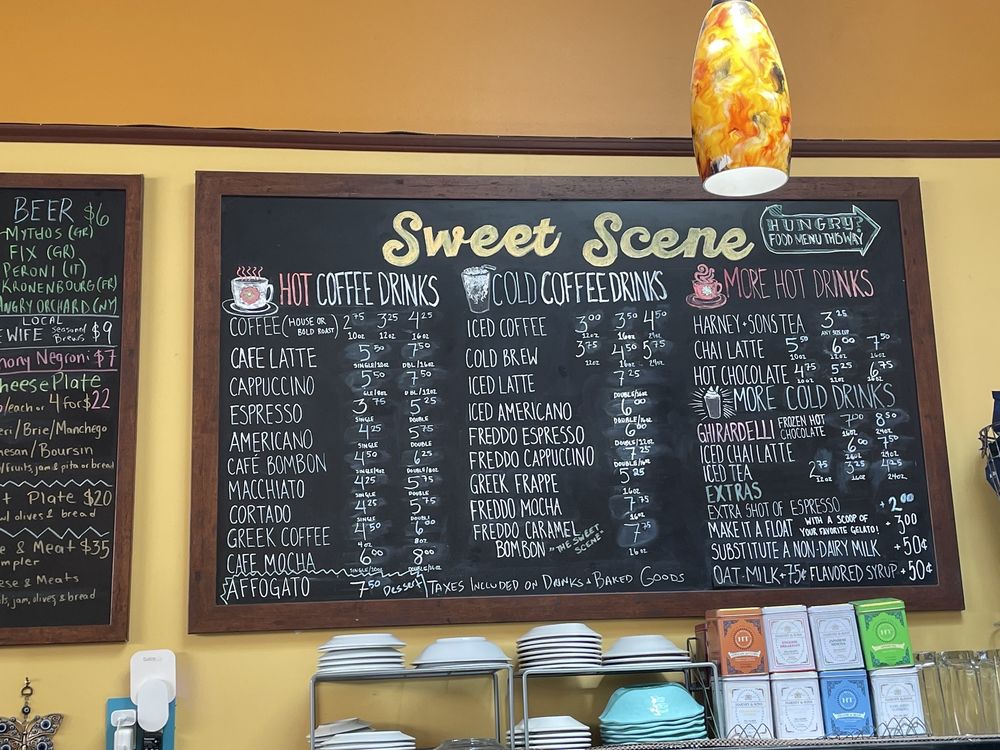 BEER $6
MYTHOS (GR)
FIX (GR)
PERONI (IT)
KRONENBOURG (FR)
ANGRY ORCHARD (NY)
LOCAL
WIFE Seasonal Brews $9
Negroni $7
Cheese Plate
each or 4 for $22
Brie/Manchego
Boursin
fruits, jam & pita or bread
Plate $20
olives & bread
& Meat $35
& Meats
jam, olives, & bread
Sweet Scene
HUNGRY?
FOOD MENU THIS WAY
HOT COFFEE DRINKS
COFFEE (HOUSE OR BOLD ROAST) 2.75 3.25 4.25
10oz 12oz 16oz
CAFE LATTE 5.50 7.50
SINGLE/10oz DBL/16oz
CAPPUCCINO 5.50 7.50
ESPRESSO 3.75 5.25
SINGLE DOUBLE
AMERICANO 4.25 5.75
SINGLE DOUBLE
CAFÉ BOMBON 4.50 6.25
MACCHIATO 4.25 5.75
SINGLE DOUBLE
CORTADO 4.25 5.75
SINGLE DOUBLE
GREEK COFFEE 4.50 6.00
4oz 8oz
CAFE MOCHA 6.00 8.00
AFFOGATO 7.50 Dessert
COLD COFFEE DRINKS
ICED COFFEE 3.00 3.50 4.50
12oz 16oz 24oz
COLD BREW 3.75 4.50 5.75
12oz 16oz 24oz
ICED LATTE 7.25
ICED AMERICANO 6.00
FREDDO ESPRESSO 6.00
FREDDO CAPPUCCINO 7.25
GREEK FRAPPE 5.25
16oz
FREDDO MOCHA 7.75
16oz
FREDDO CARAMEL BOMBON "THE SWEET SCENE" 7.75
16oz
TAXES INCLUDED ON DRINKS + BAKED GOODS
MORE HOT DRINKS
HARNEY + SONS TEA 3.25
ANY SIZE CUP
CHAI LATTE 5.50 6.00 7.50
10oz 12oz 16oz
HOT CHOCOLATE 4.75 5.25 6.75
10oz 12oz 16oz
MORE COLD DRINKS
GHIRARDELLI FROZEN HOT CHOCOLATE 7.00 8.50
16oz 24oz
ICED CHAI LATTE 6.00 7.50
16oz 24oz
ICED TEA 2.75 3.25 4.25
12oz 16oz 24oz
EXTRAS
EXTRA SHOT OF ESPRESSO +2.00
MAKE IT A FLOAT WITH A SCOOP OF YOUR FAVORITE GELATO! +3.00
SUBSTITUTE A NON-DAIRY MILK +50¢
OAT-MILK +75¢ FLAVORED SYRUP +50¢
HT
HT
HARNEY & SONS
HARNEY & SONS
HT